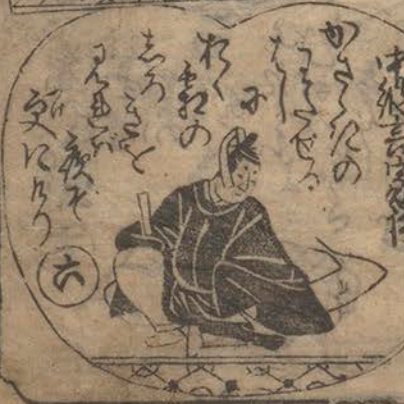 中納言家持
かさゝきの
わたせる
はしに
おく霜の
しろきを
みれば
夜そ
更にける
六